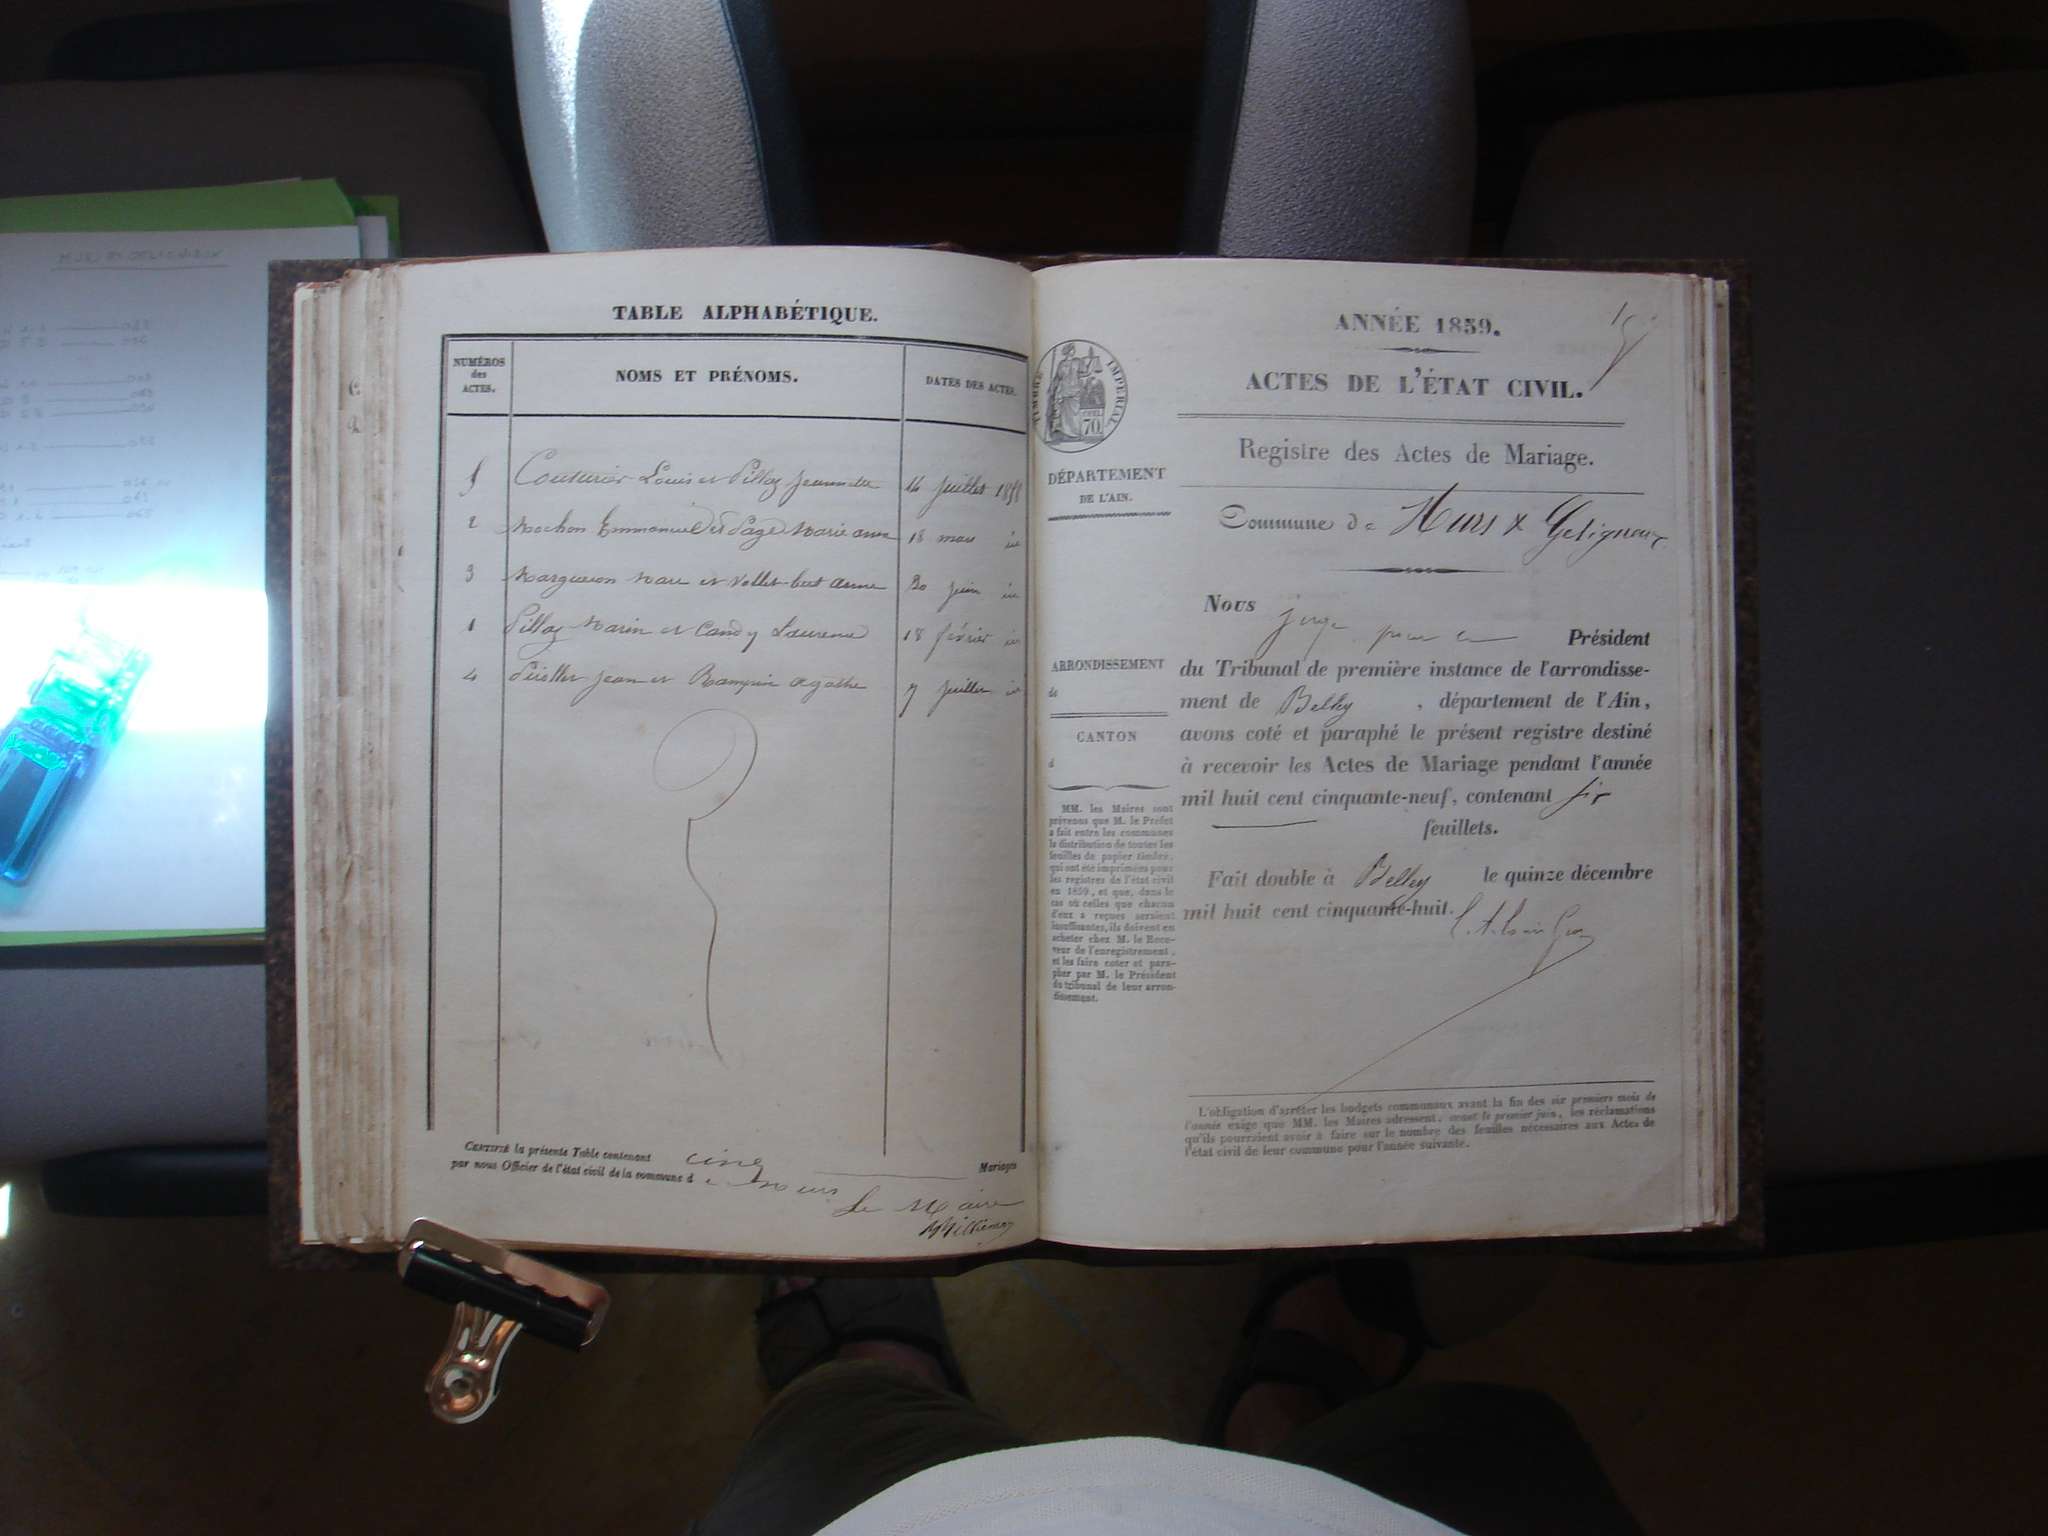 TABLE ALPHABÉTIQUE.
NUMÉROS
des
ACTES.
NOMS ET PRÉNOMS.
DATES DES ACTES.
5 Couturier Louis et Pilloz Jeannette 14 juillet 1858
2 Mochon Emmanuel et Page Marie anne 18 mars id
3 Margueron Marc et Vollet-bert anne 30 juin id
1 Pilloz Marin et Candy Laurence 18 février id
4 Jean et agathe 7 juillet id
CERTIFIÉ la présente Table contenant cinq Mariages
par nous Officier de l'état civil de la commune de Murs
Le Maire
ANNÉE 1859.
ACTES DE L'ÉTAT CIVIL.
TIMBRE IMPÉRIAL
70
Registre des Actes de Mariage.
DÉPARTEMENT
DE L'AIN.
Commune de Murs & Gelignieux
ARRONDISSEMENT
de
CANTON
d
MM. les Maires sont
prévenus que M. le Préfet
a fait entre les communes
la distribution de toutes les
feuilles de papier timbré,
qui ont été imprimées pour
les registres de l'état civil
en 1859, et que, dans le
cas où celles que chacun
d'eux a reçues seraient
insuffisantes, ils doivent en
acheter chez M. le Rece-
veur de l'enregistrement,
et les faire coter et para-
pher par M. le Président
du tribunal de leur arron-
dissement.
Nous juge pour le Président
du Tribunal de première instance de l'arrondisse-
ment de Belley, département de l'Ain,
avons coté et paraphé le présent registre destiné
à recevoir les Actes de Mariage pendant l'année
mil huit cent cinquante-neuf, contenant six
feuillets.
Fait double à Belley le quinze décembre
mil huit cent cinquante-huit.
L'obligation d'arrêter les budgets communaux avant la fin des six premiers mois de
l'année exige que MM. les Maires adressent, avant le premier juin, les réclamations
qu'ils pourraient avoir à faire sur le nombre des feuilles nécessaires aux Actes de
l'état civil de leur commune pour l'année suivante.